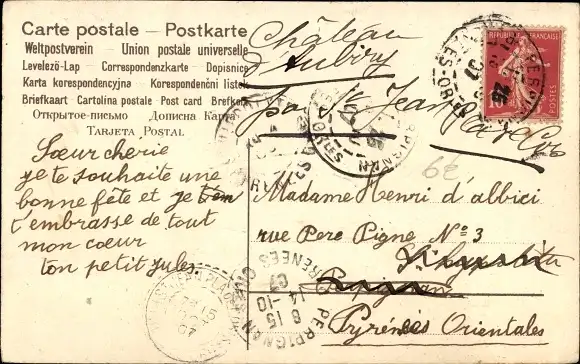 Carte postale – Postkarte
Weltpostverein – Union postale universelle
Levelező-Lap – Correspondenzkarte – Dopisnice
Karta korespondencyjna – Korespondenční lístek
Briefkaart – Cartolina postale – Post card – Brefkort
Открытое-письмо – Дописна Карта
TARJETA POSTAL
Château
d'Aubiry
par St Jean Pla de Cors
REPUBLIQUE FRANÇAISE
10
POSTES
Sœur cherie
je te souhaite une
bonne fête et je t'en
t'embrasse de tout
mon cœur
ton petit Jules
6€
Madame Henri d'albici
rue Pere Pigne N° 3
Perpignan
Pyrénées Orientales
PERPIGNAN
8 15
14-10
07
PYRENEES ORIENTALES